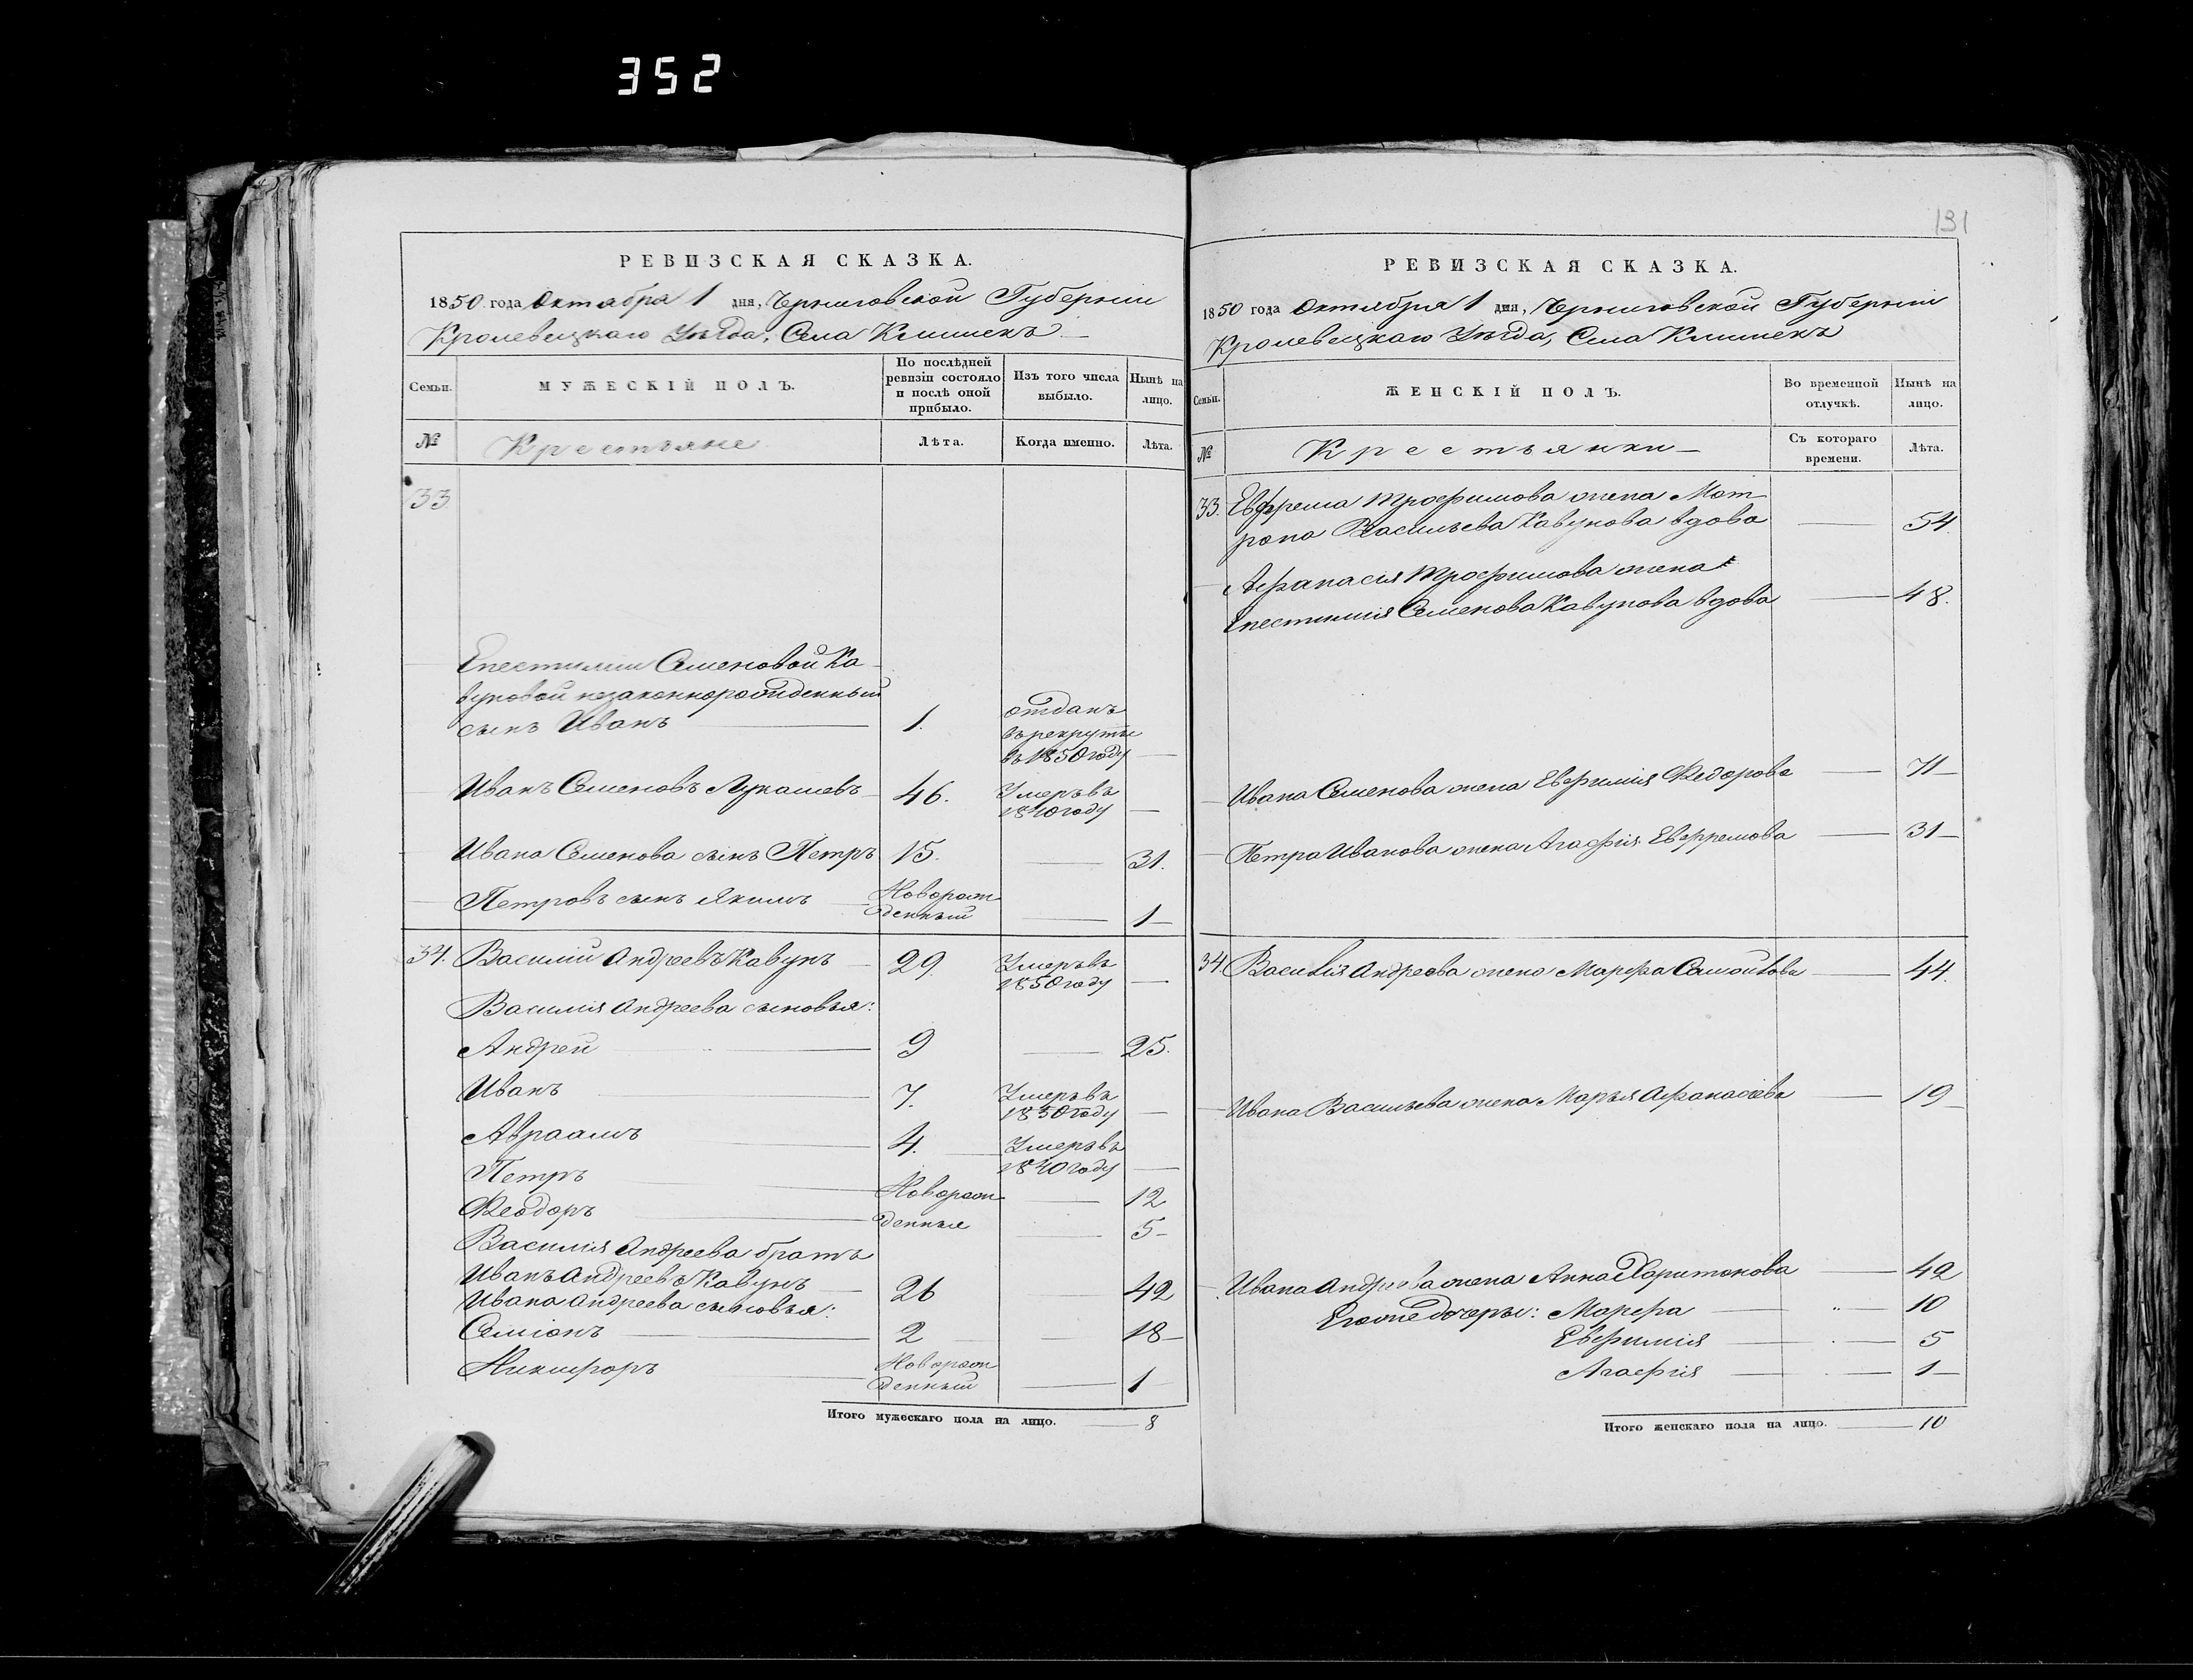 352
131
РЕВИЗСКАЯ СКАЗКА.
1850 года Октября 1 дня, Черниговской Губернiи
Кролевецкаго Уѣзда, Села Клишекъ
Семьи.
МУЖЕСКIЙ ПОЛЪ.
По послѣдней ревизiи состояло и послѣ оной прибыло.
Изъ того числа выбыло.
Нынѣ на лицо.
№
Крестьяне
Лѣта.
Когда именно.
Лѣта.
33
Епестимии Семеновой Ка
вуновой незаконнорожденный
сынъ Иванъ 1. отданъ
въ рекруты
въ 1850 году
Иванъ Семеновъ Лукашевъ 46. Умеръ въ
1840 году
Ивана Семенова сынъ Петръ 15. 31.
Петровъ сынъ Якимъ Новорож
денный 1
34. Василий Андреевъ Кавунъ 29 Умеръ въ
1850 году
Василiя Андреева сыновья:
Андрей 9 25.
Иванъ 7. Умеръ въ
1850 году
Авраамъ 4. Умеръ въ
1840 году
Петръ Новорож 12
Феодоръ денные 5
Василiя Андреева братъ
Иванъ Андреевъ Кавунъ 26 42
Ивана Андреева сыновья:
Семiонъ 2 18
Никифоръ Новорож
денный 1
Итого мужескаго пола на лицо. 8
РЕВИЗСКАЯ СКАЗКА.
1850 года Октября 1 дня, Черниговской Губернiи
Кролевецкаго Уѣзда, Села Клишекъ
Семьи.
ЖЕНСКIЙ ПОЛЪ.
Во временной отлучкѣ.
Нынѣ на лицо.
№
Крестьянки
Съ котораго времени.
Лѣта.
33. Евфрема Трофимова жена Мот
рона Васильева Кавунова вдова 54
Афанасiя Трофимова жена
Епестимiя Семенова Кавунова вдова 48.
Ивана Семенова жена Евфимiя Федорова 71
Петра Иванова жена Агафiя Евфремова 31
34 Василiя Андреева жена Марфа Самойлова 44.
Ивана Васильева жена Марья Афанасiева 19
Ивана Андреева жена Анна Харитонова 42
Егоже дочеры: Марфа 10
Евфимiя 5
Агафiя 1
Итого женскаго пола на лицо. 10